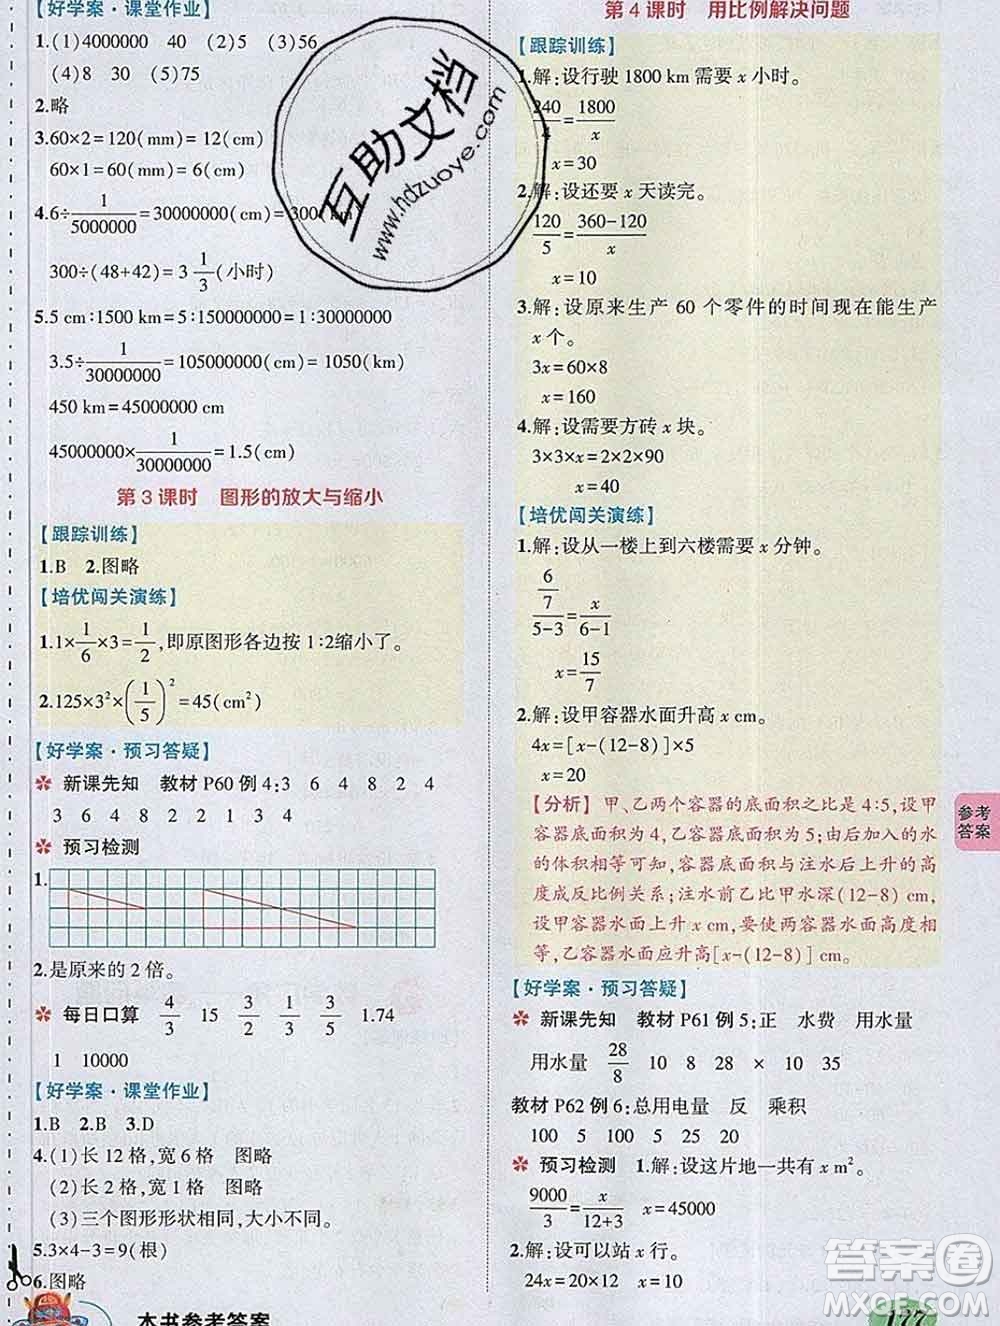 【好学案·课堂作业】
1.(1)4000000 40 (2)5 (3)56
(4)8 30 (5)75
2.略
3.60×2=120(mm)=12(cm)
60×1=60(mm)=6(cm)
4.6÷1/5000000=30000000(cm)=300(km)
300÷(48+42)=3 1/3(小时)
5.5 cm∶1500 km=5∶150000000=1∶30000000
3.5÷1/30000000=105000000(cm)=1050(km)
450 km=45000000 cm
45000000×1/30000000=1.5(cm)
第3课时 图形的放大与缩小
【跟踪训练】
1.B 2.图略
【培优闯关演练】
1.1×1/6×3=1/2,即原图形各边按1∶2缩小了。
2.125×3²×(1/5)²=45(cm²)
【好学案·预习答疑】
新课先知 教材P60例4:3 6 4 8 2 4
3 6 4 8 2 4 2
预习检测
1.
2.是原来的2倍。
每日口算 4/3 15 3/2 1/3 3/5 1.74
1 10000
【好学案·课堂作业】
1.B 2.B 3.D
4.(1)长12格,宽6格 图略
(2)长2格,宽1格 图略
(3)三个图形形状相同,大小不同。
5.3×4-3=9(根)
6.图略
本书参考答案
第4课时 用比例解决问题
【跟踪训练】
1.解:设行驶1800 km需要x小时。
240/4=1800/x
x=30
2.解:设还要x天读完。
120/5=360-120/x
x=10
3.解:设原来生产60个零件的时间现在能生产
x个。
3x=60×8
x=160
4.解:设需要方砖x块。
3×3×x=2×2×90
x=40
【培优闯关演练】
1.解:设从一楼上到六楼需要x分钟。
6/7/5-3=x/6-1
x=15/7
2.解:设甲容器水面升高x cm。
4x=[x-(12-8)]×5
x=20
【分析】甲、乙两个容器的底面积之比是4∶5,设甲
容器底面积为4,乙容器底面积为5;由后加入的水
的体积相等可知,容器底面积与注水后上升的高
度成反比例关系;注水前乙比甲水深(12-8) cm,
设甲容器水面上升x cm,要使两容器水面高度相
等,乙容器水面应升高[x-(12-8)] cm。
【好学案·预习答疑】
新课先知 教材P61例5:正 水费 用水量
用水量 28/8 10 8 28 × 10 35
教材P62例6:总用电量 反 乘积
100 5 100 5 25 20
预习检测 1.解:设这片地一共有x m²。
9000/3=x/12+3 x=45000
2.解:设可以站x行。
24x=20×12 x=10
参考
答案
177
互助文档
www.hdzuoye.com
答案圈
MXQE.COM